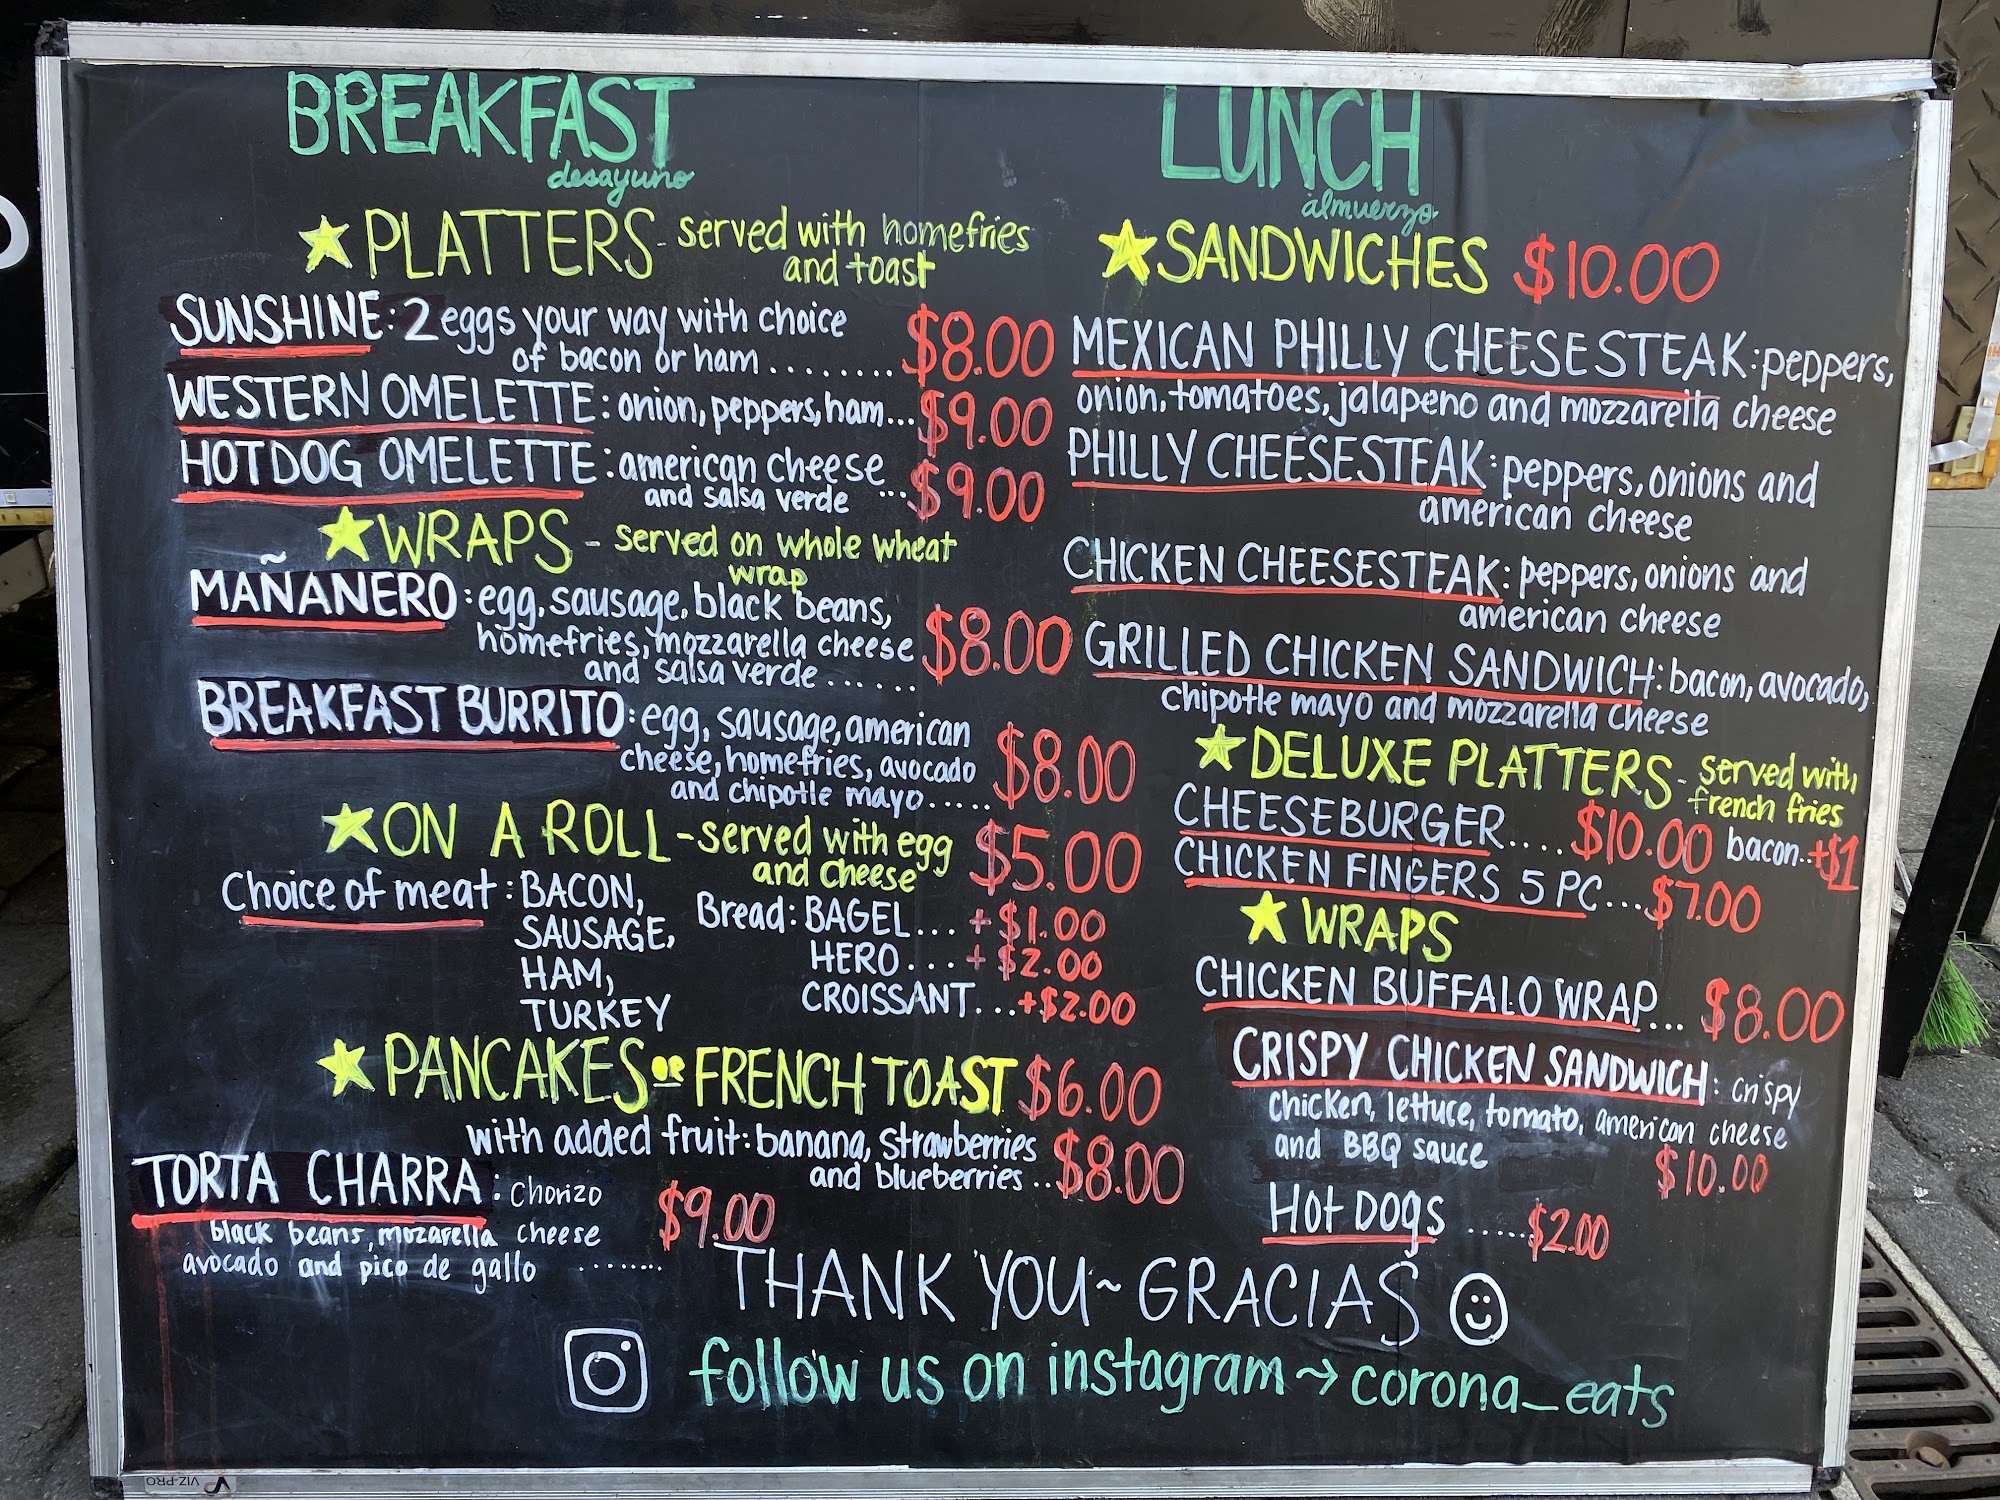 BREAKFAST
desayuno
★PLATTERS - served with homefries
and toast
SUNSHINE: 2 eggs your way with choice
of bacon or ham ........ $8.00
WESTERN OMELETTE: onion, peppers, ham... $9.00
HOTDOG OMELETTE: american cheese
and salsa verde ... $9.00
★WRAPS - served on whole wheat
wrap
MAÑANERO: egg, sausage, black beans,
homefries, mozzarella cheese
and salsa verde ...... $8.00
BREAKFAST BURRITO: egg, sausage, american
cheese, homefries, avocado
and chipotle mayo ...... $8.00
★ON A ROLL - served with egg
and cheese $5.00
Choice of meat: BACON,
SAUSAGE,
HAM,
TURKEY
Bread: BAGEL... +$1.00
HERO... +$2.00
CROISSANT... +$2.00
★PANCAKES OR FRENCH TOAST $6.00
with added fruit: banana, strawberries
and blueberries .. $8.00
TORTA CHARRA: Chorizo
black beans, mozarella cheese
avocado and pico de gallo ........ $9.00
LUNCH
almuerzo
★SANDWICHES $10.00
MEXICAN PHILLY CHEESESTEAK: peppers,
onion, tomatoes, jalapeno and mozzarella cheese
PHILLY CHEESESTEAK: peppers, onions and
american cheese
CHICKEN CHEESESTEAK: peppers, onions and
american cheese
GRILLED CHICKEN SANDWICH: bacon, avocado,
chipotle mayo and mozzarella cheese
★DELUXE PLATTERS - served with
french fries
CHEESEBURGER.... $10.00 bacon..+$1
CHICKEN FINGERS 5 PC... $7.00
★WRAPS
CHICKEN BUFFALO WRAP... $8.00
CRISPY CHICKEN SANDWICH: crispy
chicken, lettuce, tomato, american cheese
and BBQ sauce $10.00
Hot Dogs ..... $2.00
THANK YOU ~ GRACIAS
follow us on instagram → corona_eats
VIZ-PRO